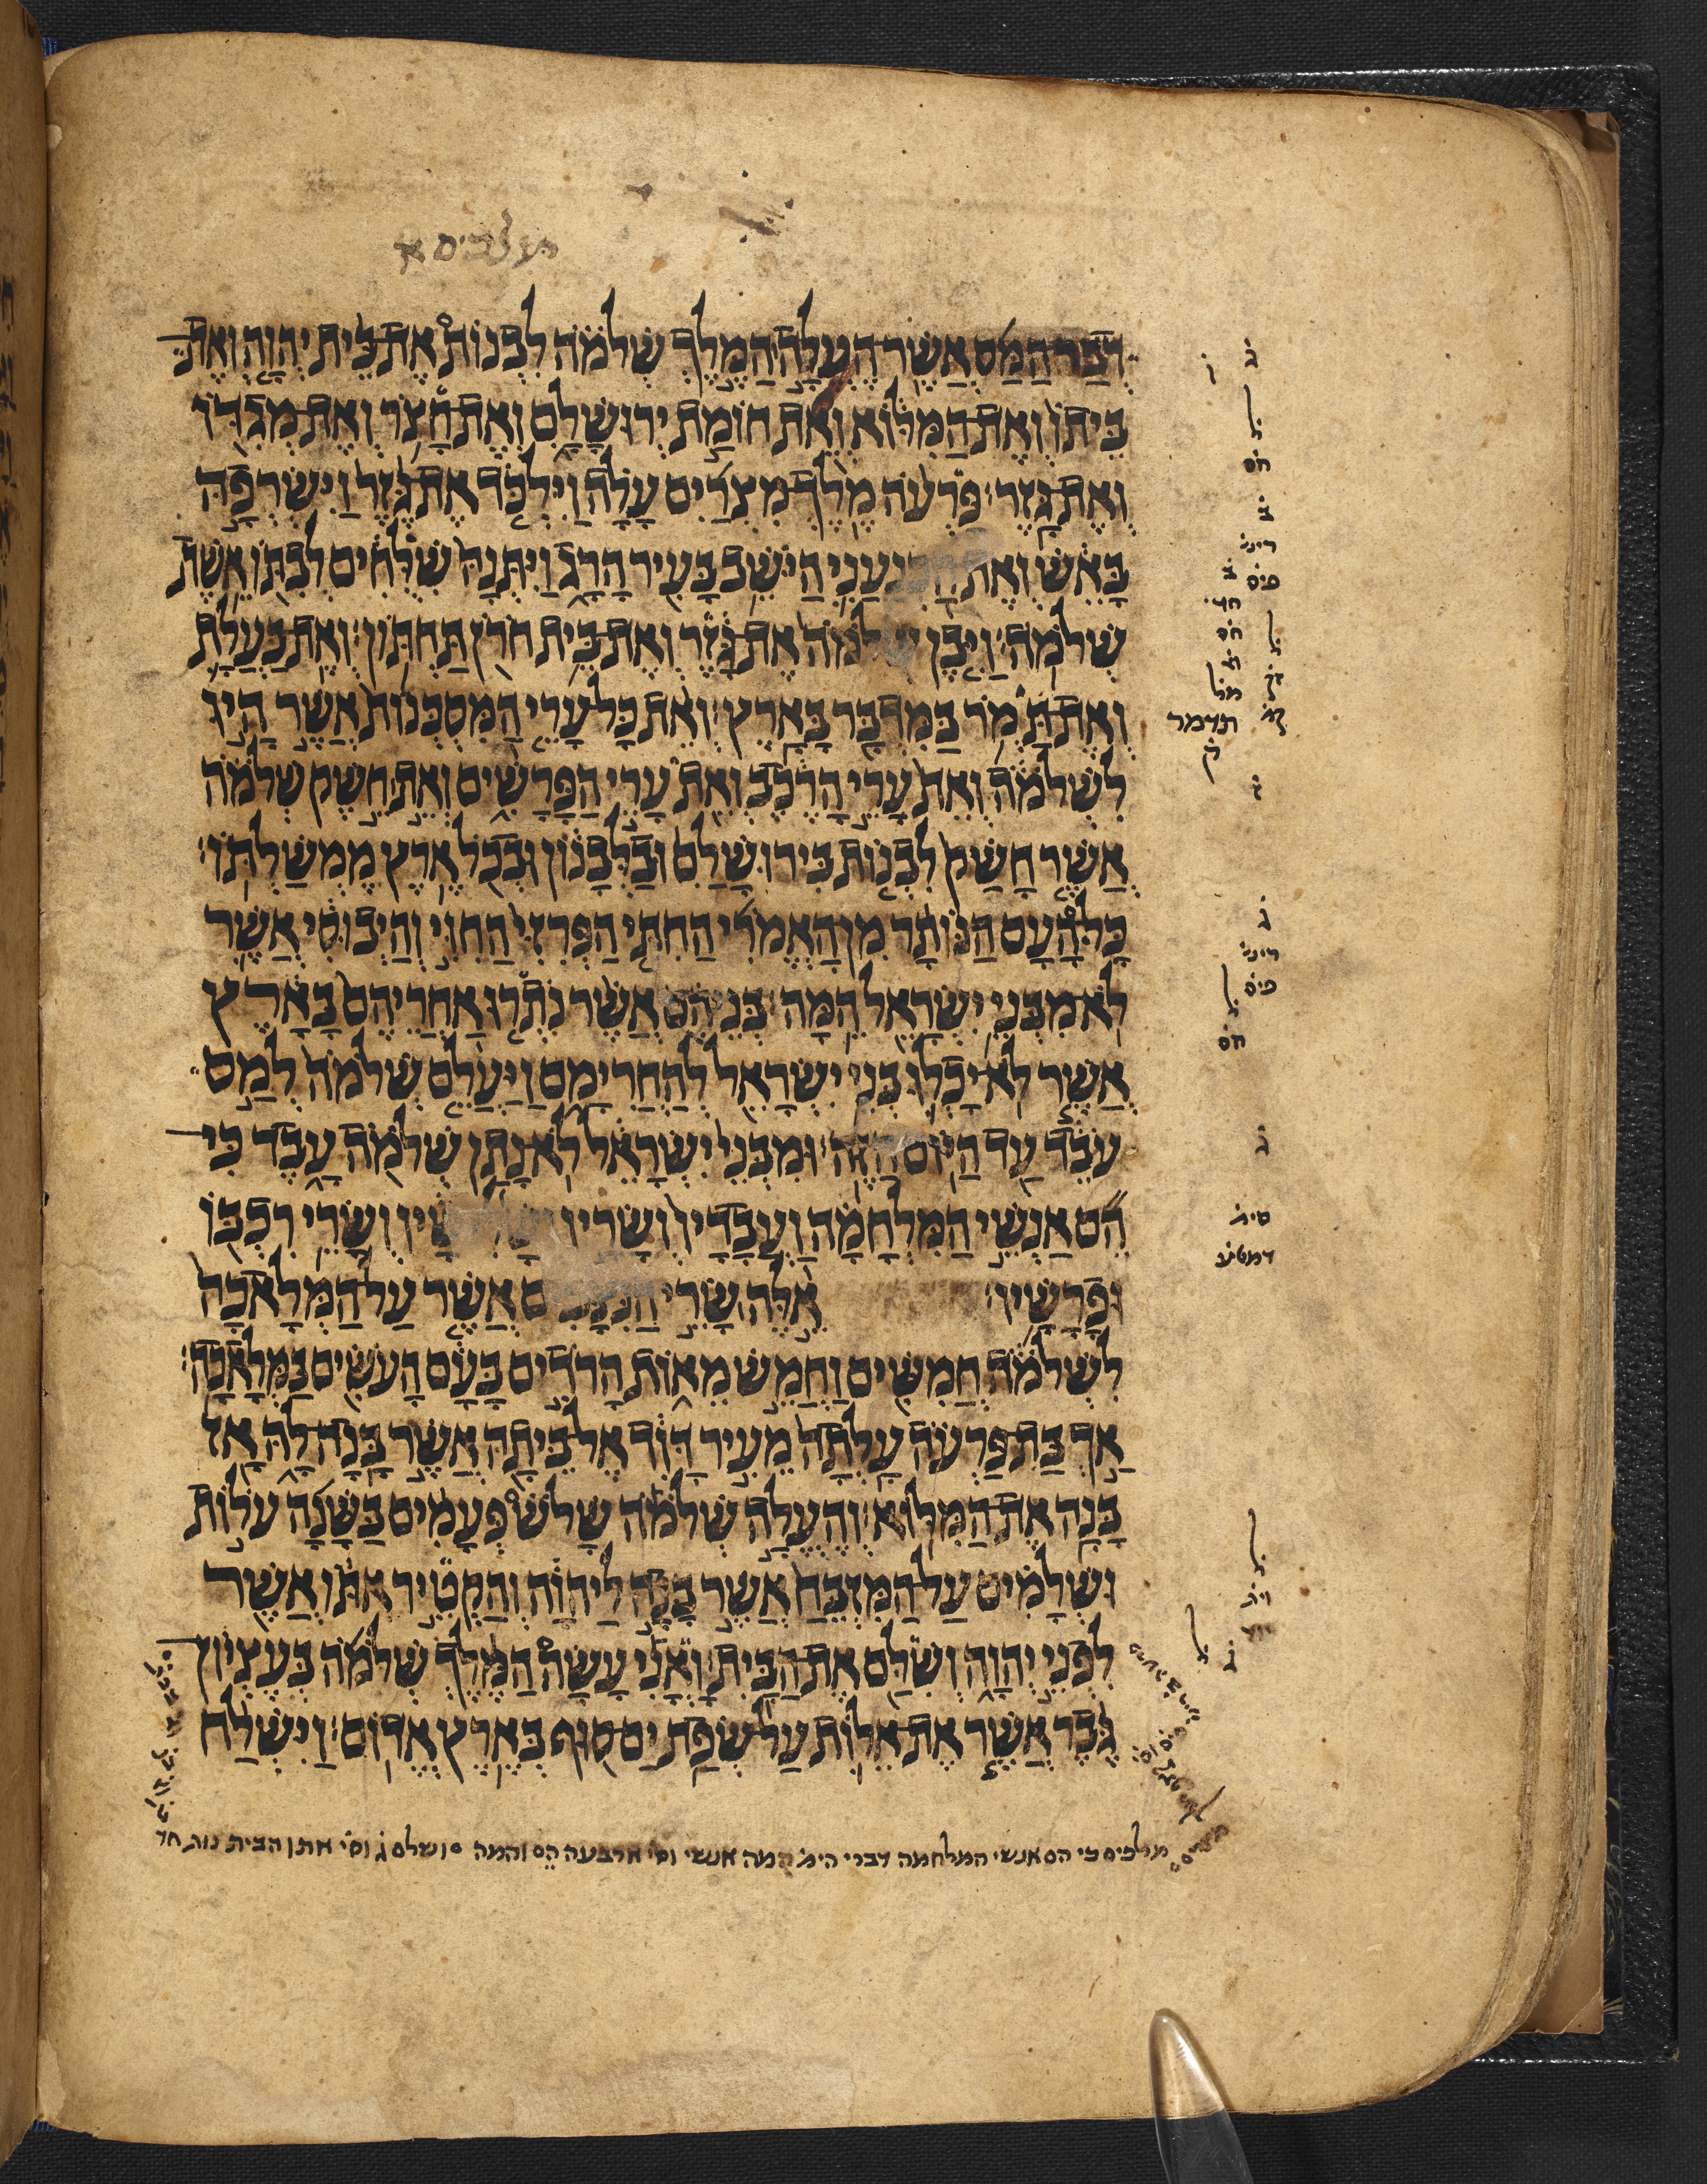 מלכים א
וְזֶה דְבַר הַמַּס אֲשֶׁר הֶעֱלָה הַמֶּלֶךְ שְׁלֹמֹה לִבְנוֹת אֶת בֵּית יְהוָה וְאֶת
בֵּיתוֹ וְאֶת הַמִּלּוֹא וְאֵת חוֹמַת יְרוּשָׁלָ͏ִם וְאֶת חָצֹר וְאֶת מְגִדּוֹ
וְאֶת גָּזֶר׃ פַּרְעֹה מֶלֶךְ מִצְרַיִם עָלָה וַיִּלְכֹּד אֶת גֶּזֶר וַיִּשְׂרְפָהּ
בָּאֵשׁ וְאֶת הַכְּנַעֲנִי הַיֹּשֵׁב בָּעִיר הָרָג וַיִּתְּנָהּ שִׁלֻּחִים לְבִתּוֹ אֵשֶׁת
שְׁלֹמֹה׃ וַיִּבֶן שְׁלֹמֹה אֶת גָּזֶר וְאֶת בֵּית חֹרֹן תַּחְתּוֹן׃ וְאֶת בַּעֲלָת
וְאֶת תָּמֹר בַּמִּדְבָּר בָּאָרֶץ׃ וְאֵת כָּל עָרֵי הַמִּסְכְּנוֹת אֲשֶׁר הָיוּ
לִשְׁלֹמֹה וְאֵת עָרֵי הָרֶכֶב וְאֵת עָרֵי הַפָּרָשִׁים וְאֵת חֵשֶׁק שְׁלֹמֹה
אֲשֶׁר חָשַׁק לִבְנוֹת בִּירוּשָׁלַ͏ִם וּבַלְּבָנוֹן וּבְכֹל אֶרֶץ מֶמְשַׁלְתּוֹ׃
כָּל הָעָם הַנּוֹתָר מִן הָאֱמֹרִי הַחִתִּי הַפְּרִזִּי הַחִוִּי וְהַיְבוּסִי אֲשֶׁר
לֹא מִבְּנֵי יִשְׂרָאֵל הֵמָּה׃ בְּנֵיהֶם אֲשֶׁר נֹתְרוּ אַחֲרֵיהֶם בָּאָרֶץ
אֲשֶׁר לֹא יָכְלוּ בְּנֵי יִשְׂרָאֵל לְהַחֲרִימָם וַיַּעֲלֵם שְׁלֹמֹה לְמַס
עֹבֵד עַד הַיּוֹם הַזֶּה׃ וּמִבְּנֵי יִשְׂרָאֵל לֹא נָתַן שְׁלֹמֹה עָבֶד כִּי
הֵם אַנְשֵׁי הַמִּלְחָמָה וַעֲבָדָיו וְשָׂרָיו וְשָׁלִשָׁיו וְשָׂרֵי רִכְבּוֹ
וּפָרָשָׁיו׃ אֵלֶּה שָׂרֵי הַנִּצָּבִים אֲשֶׁר עַל הַמְּלָאכָה
לִשְׁלֹמֹה חֲמִשִּׁים וַחֲמֵשׁ מֵאוֹת הָרֹדִים בָּעָם הָעֹשִׂים בַּמְּלָאכָה׃
אַךְ בַּת פַּרְעֹה עָלְתָה מֵעִיר דָּוִד אֶל בֵּיתָהּ אֲשֶׁר בָּנָה לָהּ אָז
בָּנָה אֶת הַמִּלּוֹא׃ וְהֶעֱלָה שְׁלֹמֹה שָׁלֹשׁ פְּעָמִים בַּשָּׁנָה עֹלוֹת
וּשְׁלָמִים עַל הַמִּזְבֵּחַ אֲשֶׁר בָּנָה לַיהוָה וְהַקְטֵיר אִתּוֹ אֲשֶׁר
לִפְנֵי יְהוָה וְשִׁלַּם אֶת הַבָּיִת׃ וָאֳנִי עָשָׂה הַמֶּלֶךְ שְׁלֹמֹה בְּעֶצְיוֹן
גֶּבֶר אֲשֶׁר אֶת אֵלוֹת עַל שְׂפַת יַם סוּף בְּאֶרֶץ אֱדוֹם׃ וַיִּשְׁלַח
ג
ל
חס
ל
תדמר
ק
ג
ל
חס
ג
סית
ל
ג
מלכים כי הם אנשי המלחמה דברי הימ המה אנשי